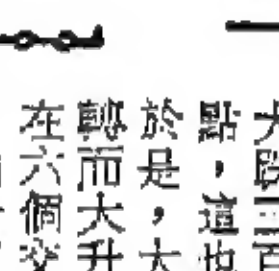 三百
點，這也
於是，大
轉而大升
在六個交